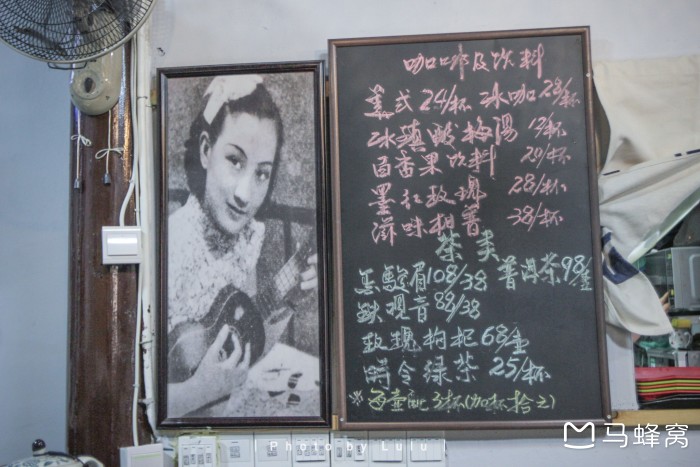 咖啡及饮料
美式24/杯 冰咖28/杯
冰镇酸梅湯 19/杯
百香果饮料 20/杯
墨红玫瑰 28/杯
滋味柑普 38/杯
茶类
金駿眉108/38 普洱茶98/壶
鉄观音88/38
玫瑰枸杞68/壶
時令绿茶 25/杯
※每壶配3杯(加杯拾元)
Photo by Lulu
马蜂窝